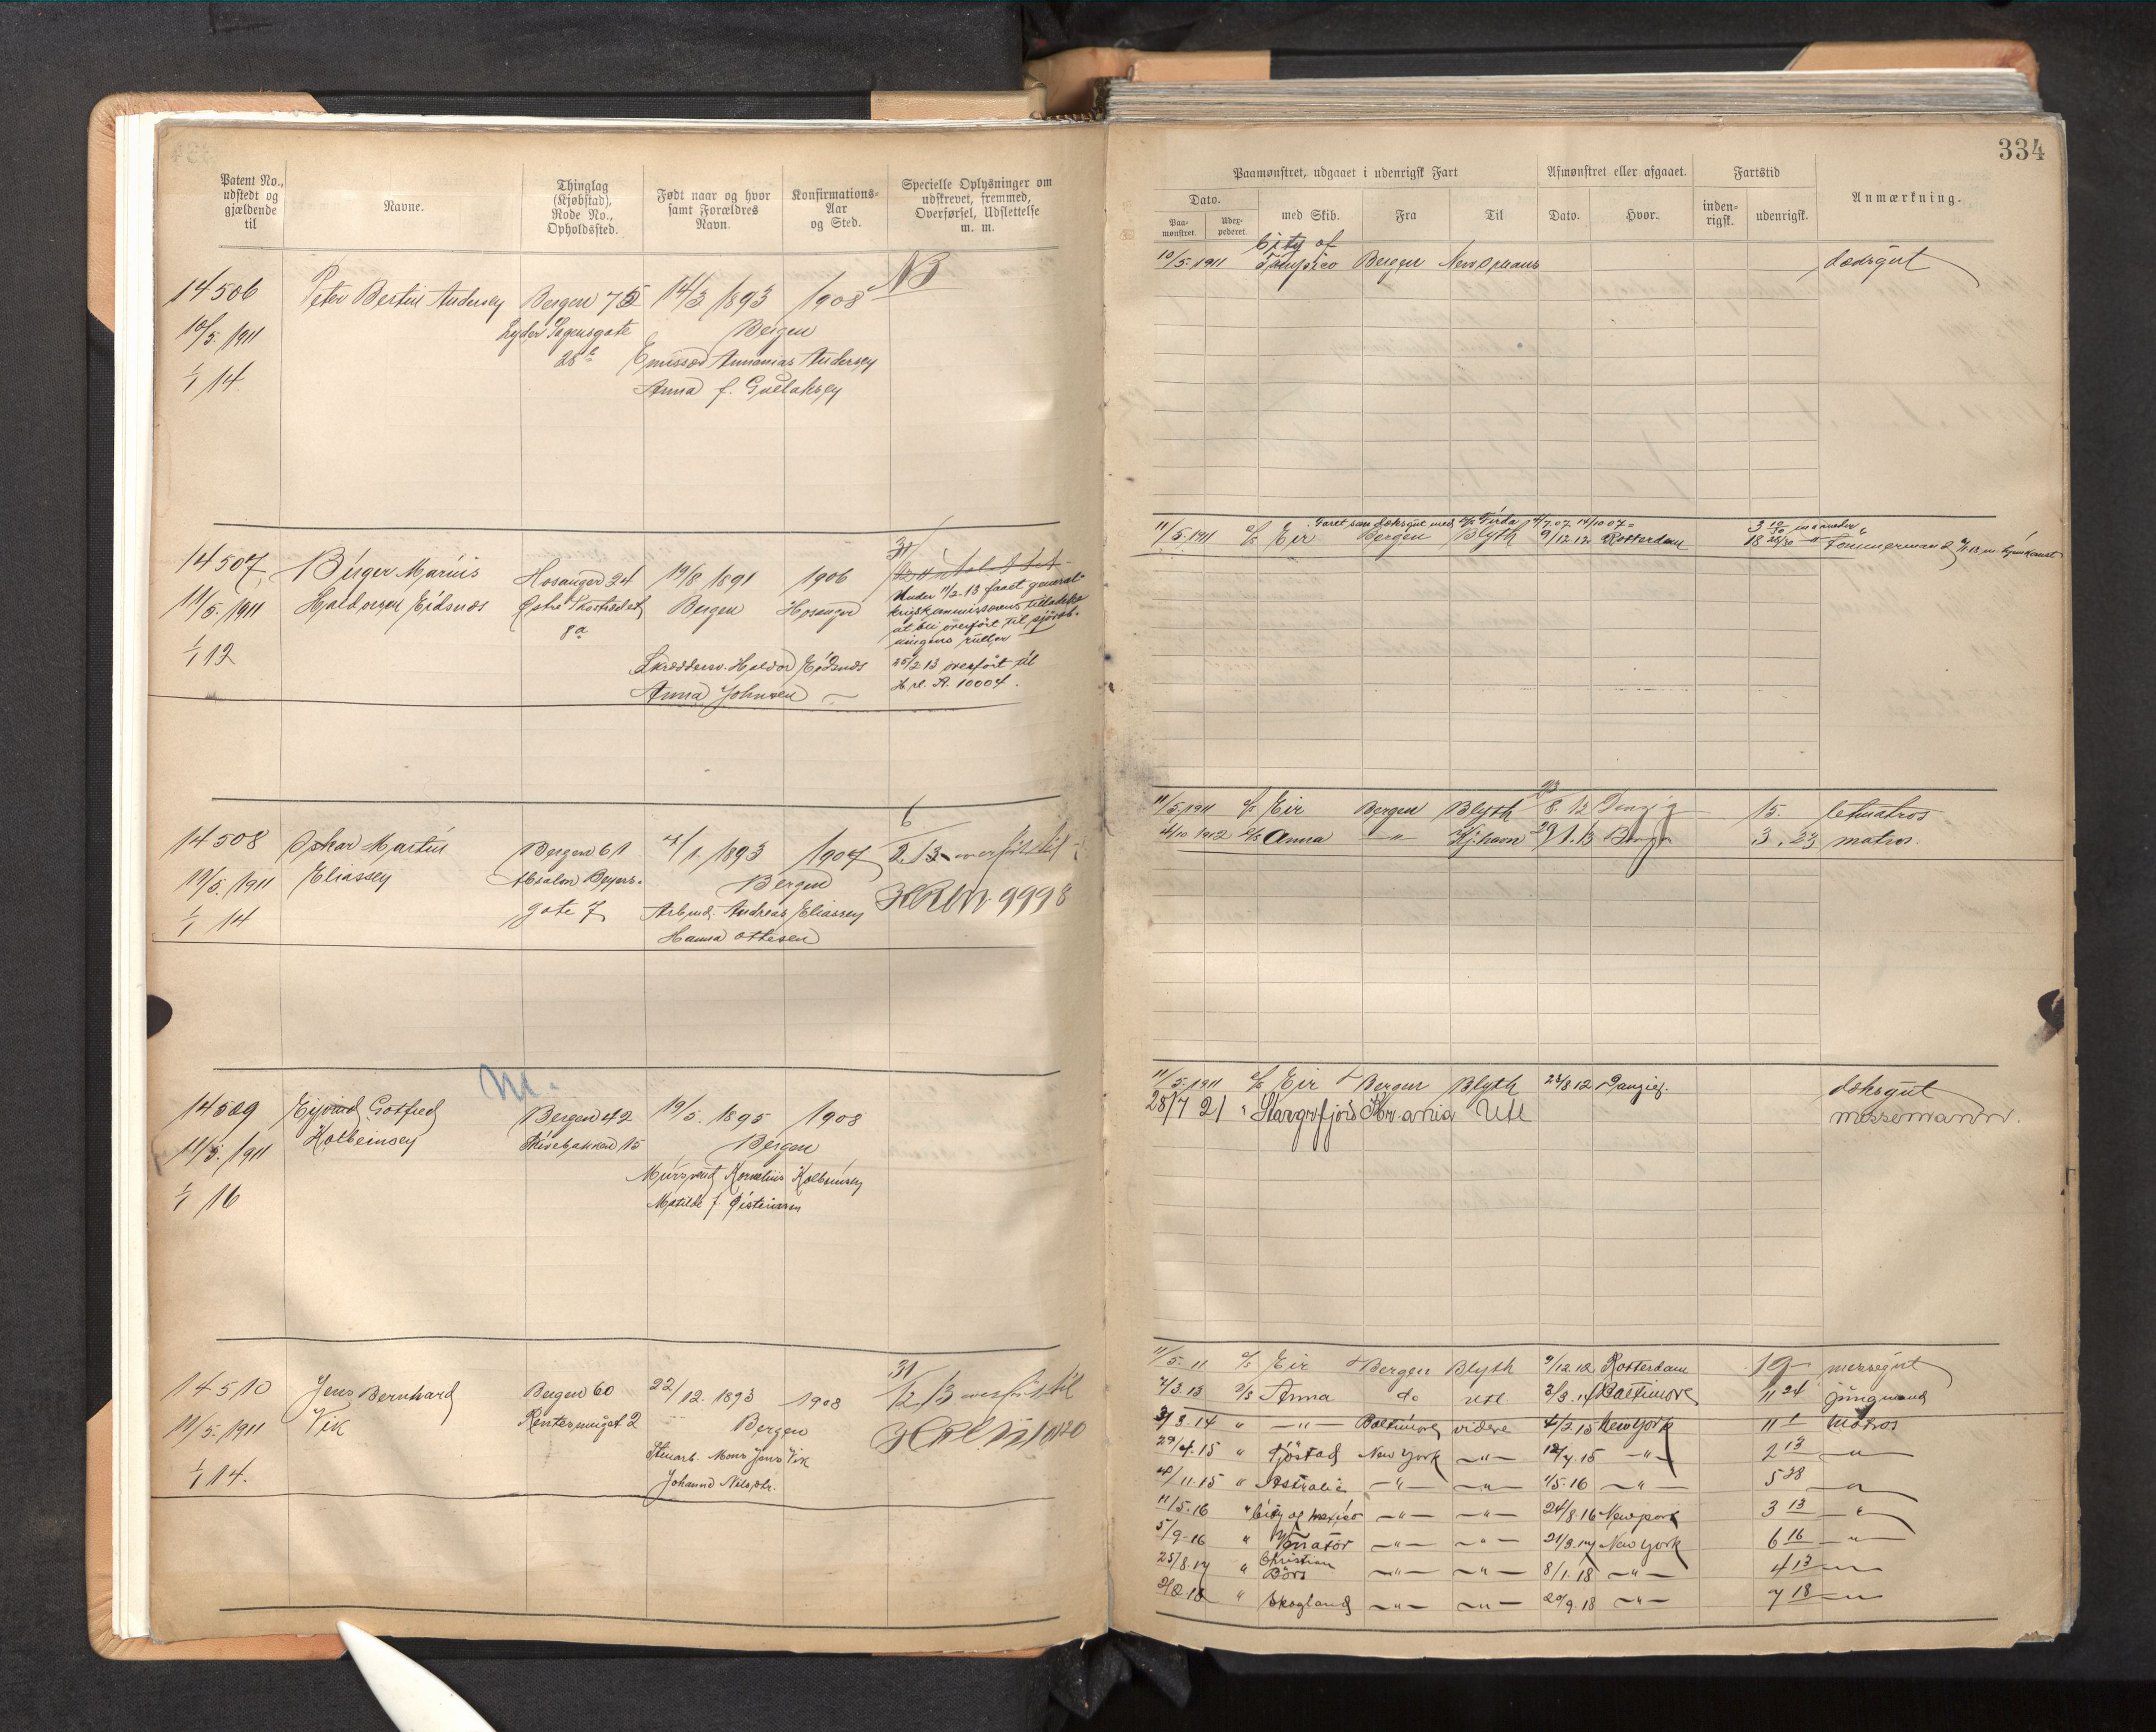 334
Patent No., udstedt og gjældende til
Navne.
Thinglag (Kjøbstad), Rode No., Opholdssted.
Født naar og hvor samt Forældres Navn.
Konfirmations-Aar og Sted.
Specielle Oplysninger om udskrevet, fremmed, Overførsel, Udslettelse m. m.
Paamønstret, udgaaet i udenrigsk Fart
Afmønstret eller afgaaet.
Fartstid
Anmærkning.
Dato.
Paa-mønstret.
Udex-pederet.
med Skib.
Fra
Til
Dato.
Hvor.
inden-rigsk.
udenrigsk.
14506 Peter Bertin Andersen Bergen 75 14/3 1893 1908
10/5. 1911 Lyder Sagensgate Bergen
28 Emissær Annanias Andersen
1/1 14 Anna f.
10/5. 1911 City of Tampico Bergen New Orleans
14507 Birger Marius Hosanger 24 19/8 1891 1906
11/5. 1911 Haldorsen Eidsnæs Østre Skostrædet Bergen Hosanger
8a
1/1 12 Haldor Eidsnæs
Anna Johnsen
Under 11/2-13 faaet general-
krigskommissærens tilladelse
at bli overført til sjøvæb-
ningens ruller
25/2 13 overført til
H. rl. A. 10004.
Faret som dæksgut med
11/5. 1911 Eir Bergen Blyth 9/12.12 Rotterdam
14508 Oskar Martin Bergen 61 1. 1893 1907
11/5. 1911 Eliassen Absalon Beyers-
Bergen
1/1 14 gate 7 Arbmd. Andreas Eliassen
Hanna Ottesen
6/2. 13 overført til
H Rl N. 9998
11/5. 1911 Eir Bergen Blyth 8. 12 Danzig 15. letmatros
4/10 1912 Anna — " — Kj.havn 29/1.13 Bergen 3. 23 matros.
M.
14509 Eyvind Gotfred Bergen 42 19/5. 1895 1908
11/5. 1911 Kolbeinsen 15 Bergen
Mursvend Kornelius Kolbeinsen
1/1 16 Matilde f. Øisteinsen
11/5. 1911 Eir Bergen Blyth 23/8.12 Danzig. dæksgut
28/7 21 " Stavgrfjord Kr.ania Utl messemann.
14510 Jens Bernhard Bergen 60 22/12. 1893 1908
11/5. 1911 Vik 2 Bergen
Stuarb. Mons Jens Vik
1/1 14. Johanne Nilsdtr.
overført til
11/5. 11 Eir Bergen Blyth 9/12 12 Rotterdam 19 messegut
2/3.13 Anna do utl. 3/3. 14 Baltimore 11 24 jungmand
3/3. 14 " — " — Baltimore videre 4/2 15 New York 11 1 Matros
29/4. 15 " Fjøstad New York — " — 12/7. 15 — " — 2 13 — " —
11. 15 " Astralia — " — — " — 5. 16 — " — 5 28 — " —
11/5. 16 " City of Mexico — " — — " — 24/8. 16 Newport 3 13 — " —
5/9. 16 " — " — — " — 21/3. 17 New York 6 16 — " —
25/8. 17 " Christian Börs — " — — " — 8/1. 18 — " — 4 13 — " —
" Skogland — " — — " — 20/9. 18 — " — 7 18 — " —